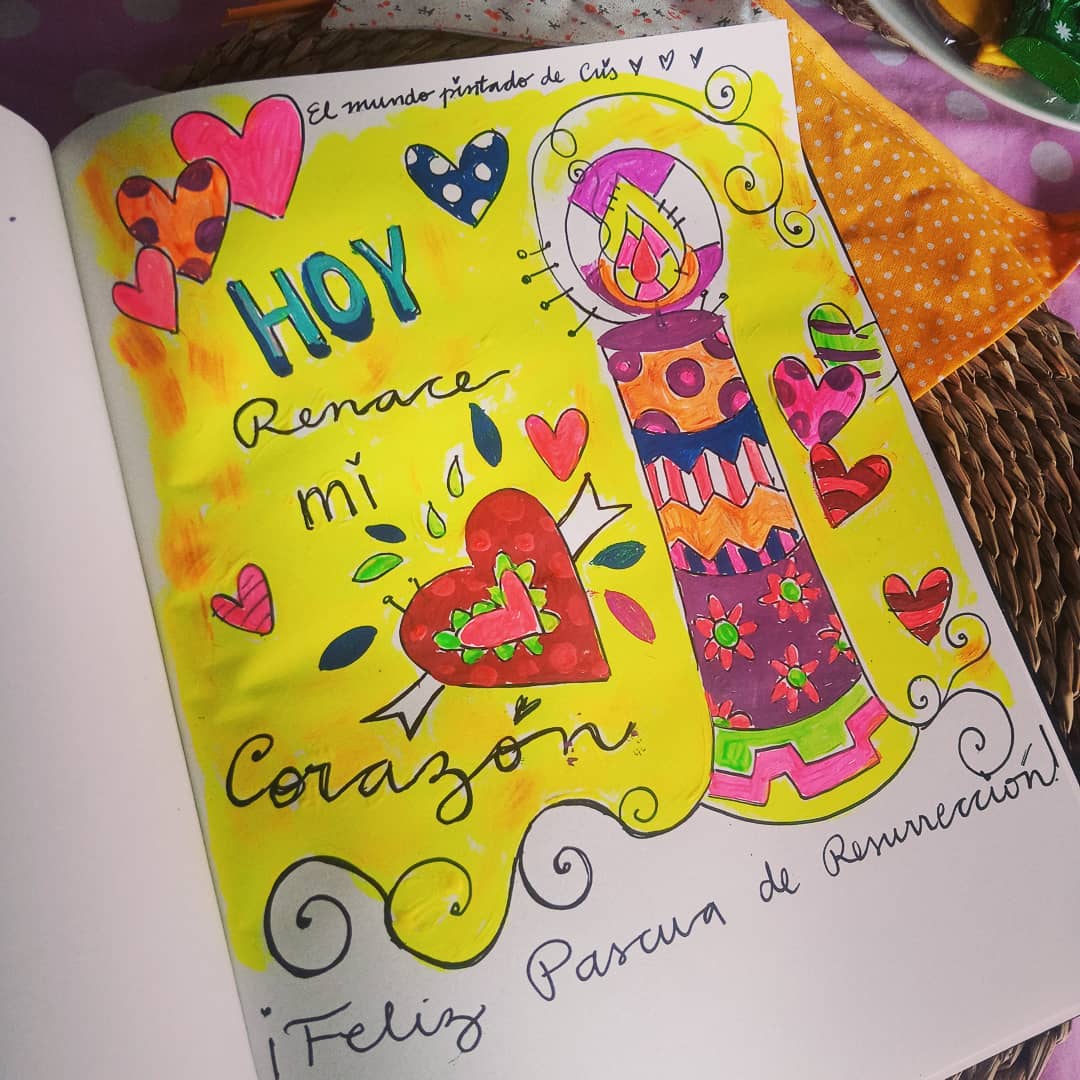 El mundo pintado de Cris
HOY
Renace
mi
Corazón
¡Feliz Pascua de Resurrección!